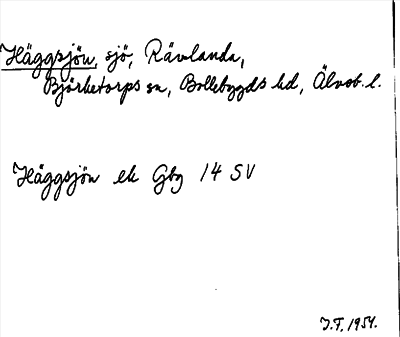 Häggsjön, sjö, Rävlanda,
Björketorps sn, Bollebygds hd, Älvsb. l.
Häggsjön ek Gbg 14 SV
I.F. 1954.